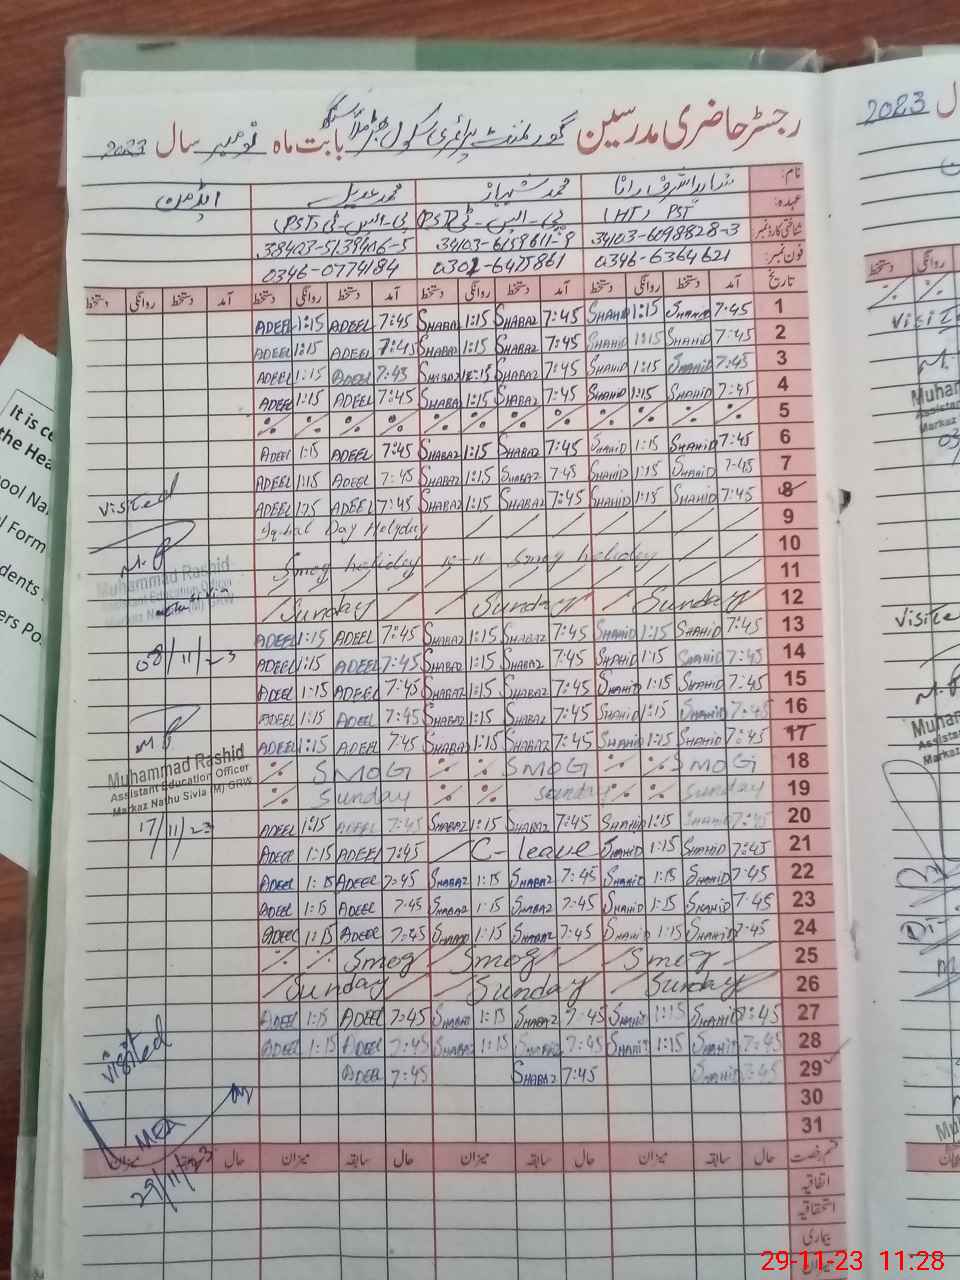 رجسٹر حاضری مدرسین گورنمنٹ پرائمری سکول بابت ماہ نومبر سال 2023
نام: شاہد اشرف رانا محمد شہباز محمد عدیل
عہدہ: (HT) PST پی۔ایس۔ٹی (PST) پی۔ایس۔ٹی (PST)
شناختی کارڈ نمبر 34103-6098828-3 34103-6159611-9
فون نمبر: 0346-6364621 0301-6475861 0346-0774184
تاریخ آمد دستخط روانگی دستخط آمد دستخط روانگی دستخط آمد دستخط روانگی دستخط آمد دستخط روانگی دستخط
1 7:45 SHAHID 1:15 SHAHID 7:45 SHABAZ 1:15 SHABAZ 7:45 ADEEL 1:15 ADEEL
2 7:45 SHAHID 1:15 SHAHID 7:45 SHABAZ 1:15 SHABAZ 7:45 ADEEL 1:15 ADEEL
3 7:45 SHAHID 1:15 SHAHID 7:45 SHABAZ 1:15 SHABAZ 7:45 ADEEL 1:15 ADEEL
4 7:45 SHAHID 1:15 SHAHID 7:45 SHABAZ 1:15 SHABAZ 7:45 ADEEL 1:15 ADEEL
5
6 7:45 SHAHID 1:15 SHAHID 7:45 SHABAZ 1:15 SHABAZ 7:45 ADEEL 1:15 ADEEL
7 7:45 SHAHID 1:15 SHAHID 7:45 SHABAZ 1:15 SHABAZ 7:45 ADEEL 1:15 ADEEL
8 7:45 SHAHID 1:15 SHAHID 7:45 SHABAZ 1:15 SHABAZ 7:45 ADEEL 1:15 ADEEL
9 Iqbal Day Holyday
10 Smog holiday 10-11 Smog holiday
11
12 Sunday Sunday Sunday
13 7:45 SHAHID 1:15 SHAHID 7:45 SHABAZ 1:15 SHABAZ 7:45 ADEEL 1:15 ADEEL
14 7:45 SHAHID 1:15 SHAHID 7:45 SHABAZ 1:15 SHABAZ 7:45 ADEEL 1:15 ADEEL
15 7:45 SHAHID 1:15 SHAHID 7:45 SHABAZ 1:15 SHABAZ 7:45 ADEEL 1:15 ADEEL
16 7:45 SHAHID 1:15 SHAHID 7:45 SHABAZ 1:15 SHABAZ 7:45 ADEEL 1:15 ADEEL
17 7:45 SHAHID 1:15 SHAHID 7:45 SHABAZ 1:15 SHABAZ 7:45 ADEEL 1:15 ADEEL
18 SMOG SMOG SMOG
19 Sunday Sunday Sunday
20 7:45 SHAHID 1:15 SHAHID 7:45 SHABAZ 1:15 SHABAZ 7:45 ADEEL 1:15 ADEEL
21 7:45 SHAHID 1:15 SHAHID C-leave 7:45 ADEEL 1:15 ADEEL
22 7:45 SHAHID 1:15 SHAHID 7:45 SHABAZ 1:15 SHABAZ 7:45 ADEEL 1:15 ADEEL
23 7:45 SHAHID 1:15 SHAHID 7:45 SHABAZ 1:15 SHABAZ 7:45 ADEEL 1:15 ADEEL
24 7:45 SHAHID 1:15 SHAHID 7:45 SHABAZ 1:15 SHABAZ 7:45 ADEEL 1:15 ADEEL
25 Smog Smog Smog
26 Sunday Sunday Sunday
27 7:45 SHAHID 1:15 SHAHID 7:45 SHABAZ 1:15 SHABAZ 7:45 ADEEL 1:15 ADEEL
28 7:45 SHAHID 1:15 SHAHID 7:45 SHABAZ 1:15 SHABAZ 7:45 ADEEL 1:15 ADEEL
29 7:45 SHAHID 7:45 SHABAZ 7:45 ADEEL
30
31
قسم رخصت حال سابقہ میزان حال سابقہ میزان حال سابقہ میزان حال سابقہ میزان
اتفاقیہ
استحقاقیہ
بیماری
میزان
visited
Muhammad Rashid
Assistant Education Officer
Markaz Nathu Sivia (M) GRW
08/11/23
Muhammad Rashid
Assistant Education Officer
Markaz Nathu Sivia (M) GRW
17/11/23
visited
MEA
29/11/23
سال 2023
visited
Muham
Assistant
Markaz
29-11-23 11:28